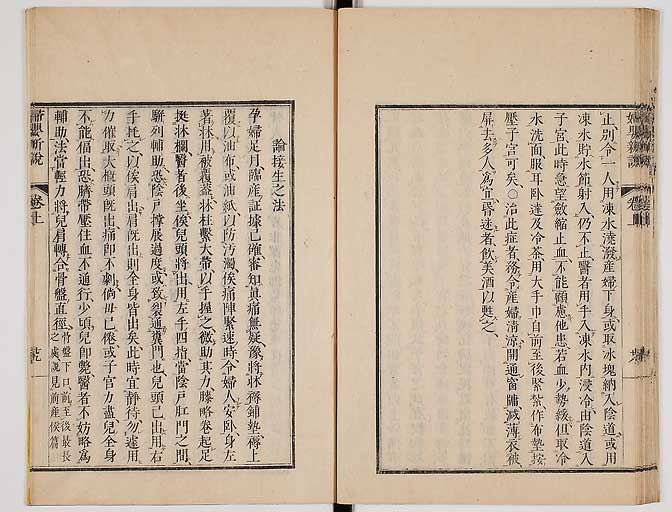 止別令一人用凍水澆潑產婦下身或取冰塊納入陰道或用
凍水貯水節射入仍不止醫者用手入凍水內浸冷由陰道入
子宮此時急望斂縮止血不能顧慮他患若血少勢緩但取冷
水洗面服耳臥達及冷茶用大手巾自前至後緊紮作布墊按
壓子宮可矣○治此症者務令產婦清涼開通窗牖減薄衣被
屏去多人為宜昏迷者飲美酒以甦之
婦嬰新說
卷上
論接生之法
孕婦足月臨產証據已確審知真痛無疑豫將牀褥鋪墊褥上
覆以油布或油紙以防汚濁俟痛陣緊速時令婦人安臥身左
著牀用被覆蓋牀柱繫大帶以手握之微助其力膝略卷起足
挺牀欄醫者後坐俟兒頭將出用左手四指當陰戶肛門之間
駢列輔助恐陰戶撐展過度或致裂通糞門也兒頭已出用右
手托之以俟肩出肩既出則全身皆出矣此時宜靜待勿遽用
力催取大槪頭既出痛卽不劇倘母已倦或子宮力盡兒全身
不能偪出恐臍帶壓住血不通行少頃兒卽斃醫者不妨略為
輔助法當輕力將兒肩轉令骨盤直徑骨盤下口前至後最長之處說見前產候篇
婦嬰新說
卷上